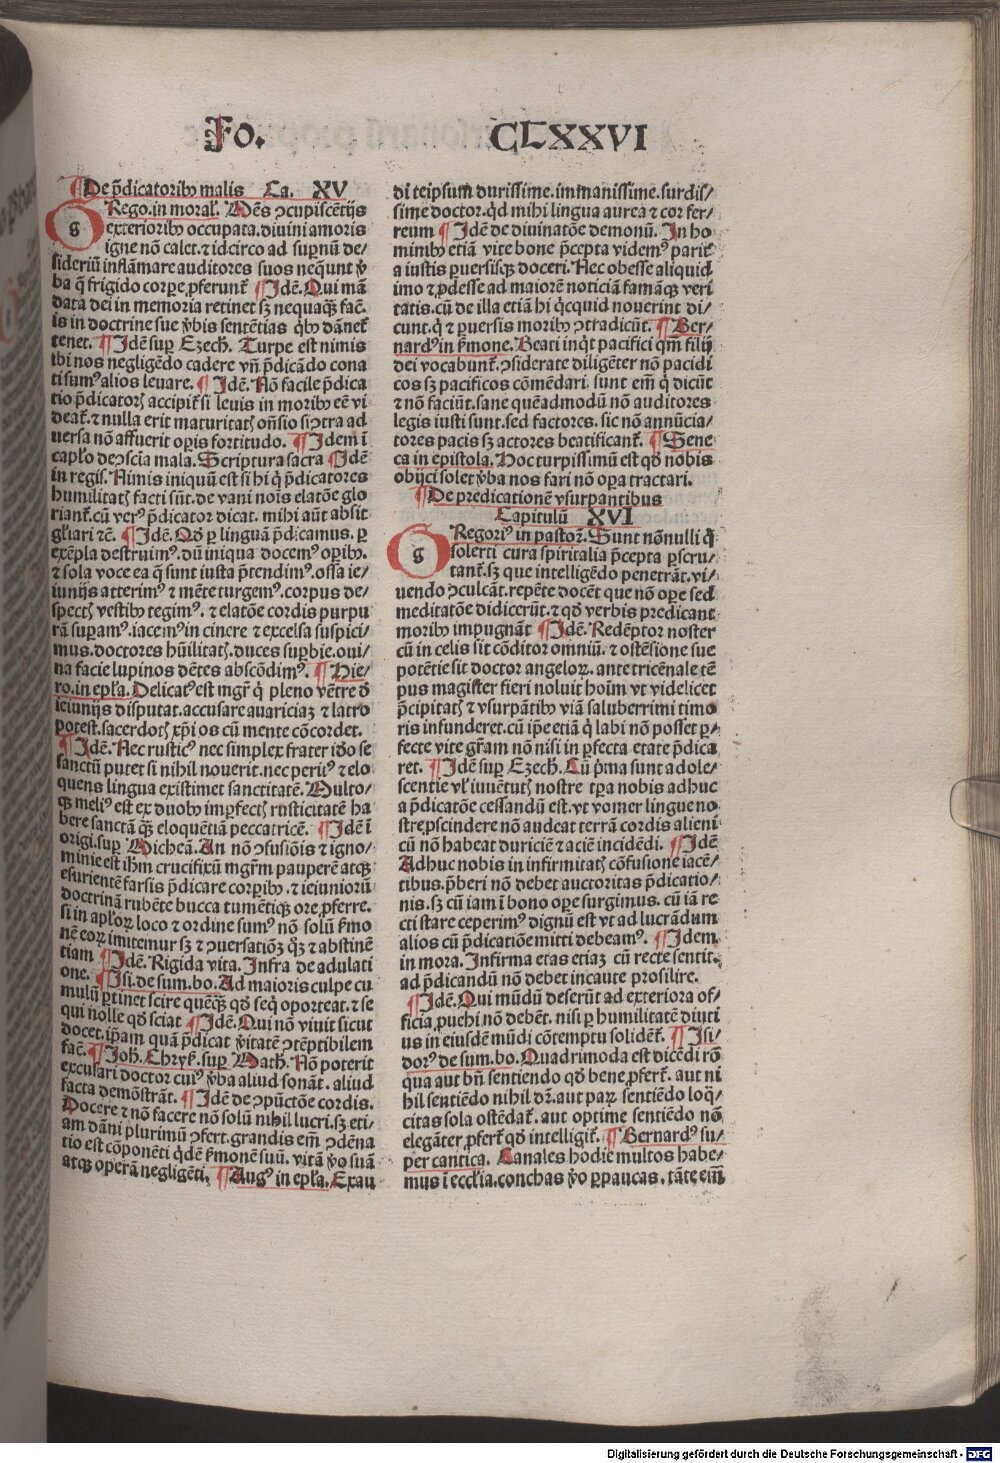 Fo. CLXXVI
¶De p̄dicatoribꝰ malis Ca. XV
GRego.in moral̓. Mēs ꝯcupiscētijs
exterioribꝰ occupata.diuini amoris
igne nō calet.⁊ idcirco ad supernū de⸗
sideriū inflāmare auditores suos neq̄unt v̄
ba q̄ frigido corꝑe ꝓferunt̄ ¶Idē.Qui mā
data dei in memoria retinet sꝫ nequaꝗ̄ fac̄.
is in doctrine sue v̄bis sentētias q̄bꝰ dānet̄
tenet. ¶Idē suꝑ Ezech̄. Turpe est nimis
ibi nos negligēdo cadere vn̄ p̄dicādo cona
ti sumꝰ alios leuare. ¶Idē. Nō facile p̄dica
tio p̄dicatorꝭ accipit̄ si leuis in moribꝰ eē vi
deat̄.⁊ nulla erit maturitatꝭ on̄sio si ꝯtra ad
uersa nō affuerit oꝑis fortitudo. ¶Idem ī
cap̄lo de ꝯsciā mala. Scriptura sacra ¶Idē
in regiſ. Nimis iniquū est si hi q̄ p̄dicatores
humilitatꝭ facti sūt.de vani nois elatōe glo
riant̄.cū verꝰ p̄dicator dicat. mihi aūt absit
gl̄iari ⁊c̄. ¶Idē. Qđ ꝑ linguā p̄dicamus. ꝑ
exēpla destruimꝰ.dū iniqua docemꝰ oꝑibꝰ.
⁊ sola voce ea q̄ sunt iusta p̄tendimꝰ.ossa ie⸗
iunijs atterimꝰ ⁊ mēte turgemꝰ.corpus de⸗
spectꝭ vestibꝰ tegimꝰ. ⁊ elatōe cordis purpu
rā suꝑamꝰ.iacemꝰ in cinere ⁊ excelsa suspici⸗
mus.doctores hūilitatꝭ.duces suꝑbie.oui⸗
na facie lupinos dētes abscōdimꝰ. ¶Hie⸗
ro.in ep̄la.Delicatꝰ est mgr̄ q̄ pleno vētre đ
ieiunijs disputat.accusare auariciaꝫ ⁊ latro
potest.sacerdotꝭ xp̄i os cū mente cōcordet.
¶Idē. Nec rusticꝰ nec simplex frater iđo se
sanctū putet si nihil nouerit.nec peritꝰ ⁊ elo
quens lingua existimet sanctitatē. Multo⸗
qꝫ meliꝰ est ex duobꝰ imꝑfectꝭ rusticitatē ha
bere sanctā ꝗ̄ eloquētiā peccatricē. ¶Idē ī
origi.suꝑ Micheā.An nō ꝯfusiōis ⁊ igno⸗
minie est ih̄m crucifixū mgr̄m pauperē atqꝫ
esurientē farsis p̄dicare corꝑibꝰ.⁊ ieiuniorū
doctrinā rubēte bucca tumētiqꝫ ore ꝓferre.
si in apl̄oꝝ loco ⁊ ordine sumꝰ nō solū ẜmo
nē eoꝝ imitemur sꝫ ⁊ ꝯuersatiōꝫ q̄ꝫ ⁊ abstinē
tiam ¶Idē. Rigida vita. Infra de adulati
one. ¶Isi.de sum.bo.Ad maioris culpe cu
mulū ꝑtinet scire quēꝗ̄ qđ seq̄ oporteat.⁊ se
qui nolle qđ sciat ¶Idē.Qui nō viuit sicut
docet.ip̄am quā p̄dicat v̄itatē ꝯtēptibilem
fac̄. ¶Joh̄. Chryſ. suꝑ Math̄. Nō poterit
excusari doctor cuiꝰ v̄ba aliud sonāt. aliud
facta demōstrāt. ¶Idē de ꝯpūctōe cordis.
Docere ⁊ nō facere nō solū nihil lucri.sꝫ eti⸗
am dāni plurimū ꝯfert.grandis em̄ ꝯdēna
tio est cōponēti q̄dē ẜmonē suū. vitā v̄o suā
atqꝫ operā negligēti, ¶Augꝰ in ep̄la. Exau
di teipsum durissime.immanissime.surdis⸗
sime doctor.qđ mihi lingua aurea ⁊ cor fer⸗
reum ¶Idē de diuinatōe demonū. In ho
minibꝰ etiā vite bone p̄cepta videmꝰ parit̄
a iustis ꝑuersisqꝫ doceri. Nec obesse aliquid
imo ⁊ ꝓdesse ad maiorē noticiā famāqꝫ veri
tatis.cū de illa etiā hi q̄cquid nouerint di⸗
cunt.q̄ ⁊ ꝑuersis moribꝰ ꝯtradicūt. ¶Ber⸗
nardꝰ in ẜmone. Beati inq̄t pacifici qm̄ filij
dei vocabunt̄.ꝯsiderate diligēter nō pacidi
cos sꝫ pacificos cōmēdari. sunt em̄ q̄ dicūt
⁊ nō faciūt.sane quēadmodū nō auditores
legis iusti sunt.sed factores. sic nō annūcia⸗
tores pacis sꝫ actores beatificant̄. ¶Sene
ca in epistola. Hoc turpissimū est qđ nobis
obijci solet v̄ba nos fari nō oꝑa tractari.
¶De predicationē vsurpantibus
Capitulū XVI
GRegoriꝰ in pastoꝝ. Sunt nōnulli q̄
solerti cura spiritalia p̄cepta ꝑscru⸗
tant̄.sꝫ que intelligēdo penetrāt.vi⸗
uendo ꝯculcāt.repēte docēt que nō oꝑe sed
meditatōe didicerūt.⁊ qđ verbis predicant
moribꝰ impugnāt ¶Idē. Redēptor noster
cū in celis sit cōditor omniū. ⁊ ostēsione sue
potētie sit doctor angeloꝝ. ante tricēnale tē
pus magister fieri noluit hoīm vt videlicet
p̄cipitatꝭ ⁊ vsurpātibꝰ viā saluberrimi timo
ris infunderet.cū ip̄e etiā q̄ labi nō posset ꝑ⸗
fecte vite gr̄am nō nisi in ꝑfecta etate p̄dica
ret. ¶Idē suꝑ Ezech̄. Cū p̄ma sunt adole⸗
scentie vl̓ iuuētutꝭ nostre tꝑa nobis adhuc
a p̄dicatōe cessandū est.vt vomer lingue no
stre ꝓscindere nō audeat terrā cordis alieni
cū nō habeat duriciē ⁊ aciē incidēdi. ¶Idē
Adhuc nobis in infirmitatꝭ cōfusione iacē⸗
tibus.p̄beri nō debet auctoritas p̄dicatio⸗
nis.sꝫ cū iam ī bono oꝑe surgimus.cū iā re
cti stare ceperimꝰ dignū est vt ad lucrādum
alios cū p̄dicatiōe mitti debeamꝰ. ¶Idem
in mora. Infirma etas etiaꝫ cū recte sentit.
ad p̄dicandū nō debet incaute prosilire.
¶Idē.Qui mūdū deserūt ad exteriora of⸗
ficia ꝓuehi nō debēt. nisi ꝑ humilitatē diuti
us in eiusdē mūdi cōtemptu solidēt̄. ¶Isi⸗
dorꝰ de sum.bo. Quadrimoda est dicēdi rō
qua aut bn̄ sentiendo qđ bene ꝓfert̄. aut ni
hil sentiēdo nihil dr̄.aut paꝝ sentiēdo loq̄⸗
citas sola ostēdat̄. aut optime sentiēdo nō
elegāter ꝓfert̄ qđ intelligit̄. ¶Bernardꝰ su⸗
per cantica. Canales hodie multos habe⸗
mus ī eccl̄ia.conchas v̄o ꝑpaucas. tāte em̄
Digitalisierung gefördert durch die Deutsche Forschungsgemeinschaft - DFG